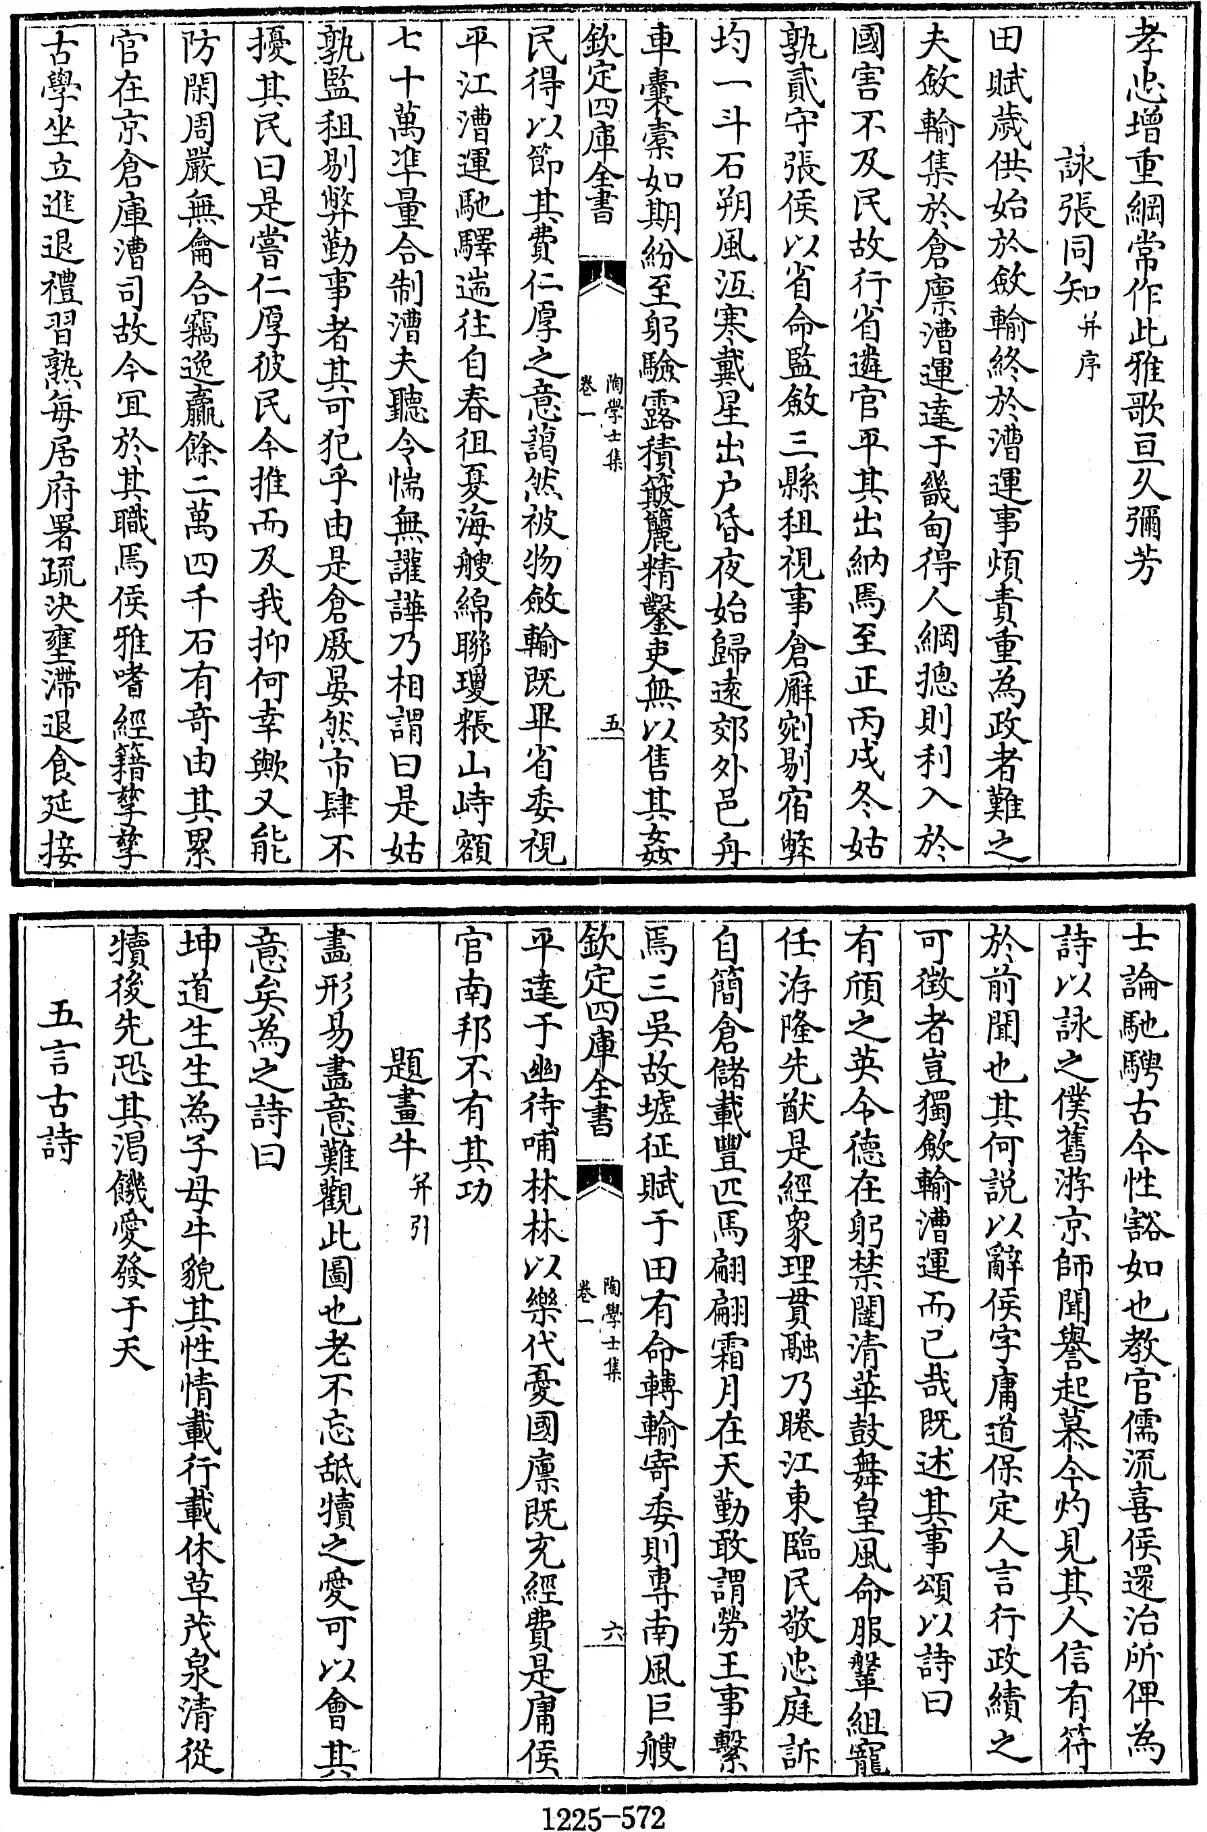 孝忠增重綱常作此雅歌亘久彌芳
詠張同知并序
田賦歲供始於斂輸終於漕運事煩責重為政者難之
夫斂輸集於倉廪漕運達于畿甸得人綱摠則利入於
國害不及民故行省遴官平其出納焉至正丙戌冬姑
孰貳守張侯以省命監斂三縣租視事倉廨剜剔宿弊
均一斗石朔風沍寒戴星出户昏夜始歸遠郊外邑舟
車囊槖如期紛至躬驗露積簸簏精鑿吏無以售其姦
欽定四庫全書
陶學士集
卷一
五
民得以節其費仁厚之意藹然被物斂輸既畢省委視
平江漕運馳驛遄往自春徂夏海艘綿聯瓊粻山峙額
七十萬準量合制漕夫聽令惴無讙譁乃相謂曰是姑
孰監租剔弊勤事者其可犯乎由是倉厫晏然市肆不
擾其民曰是嘗仁厚彼民今推而及我抑何幸歟又能
防閑周嚴無龠合竊逸羸餘二萬四千石有奇由其累
官在京倉庫漕司故今宜於其職焉侯雅嗜經籍孳孳
古學坐立進退禮習熟每居府署疏決壅滯退食延接
士論馳騁古今性豁如也教官儒流喜侯還治所俾為
詩以詠之僕舊游京師聞譽起慕今灼見其人信有符
於前聞也其何說以辭侯字庸道保定人言行政績之
可徵者豈獨斂輸漕運而已哉既述其事頌以詩曰
有頎之英令德在躬禁闥清華鼓舞皇風命服鞶組寵
任洊隆先猷是經衆理貫融乃睠江東臨民敬忠庭訴
自簡倉儲載豐匹馬翩翩霜月在天勤敢謂勞王事繫
焉三吳故墟征賦于田有命轉輸寄委則專南風巨艘
欽定四庫全書
陶學士集
卷一
六
平達于幽待哺林林以樂代憂國廪既充經費是庸侯
官南邦不有其功
題畫牛并引
畫形易盡意難觀此圖也老不忘舐犢之愛可以會其
意矣為之詩曰
坤道生生為子母牛貌其性情載行載休草茂泉清從
犢後先恐其渴饑愛發于天
五言古詩
1225-572